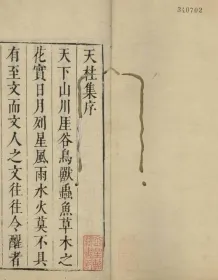 310762
天柱集序
天下山川厓谷鳥獸蟲魚草木之
花實日月列星風雨水火莫不具
有至文而文人之文往往令醒者